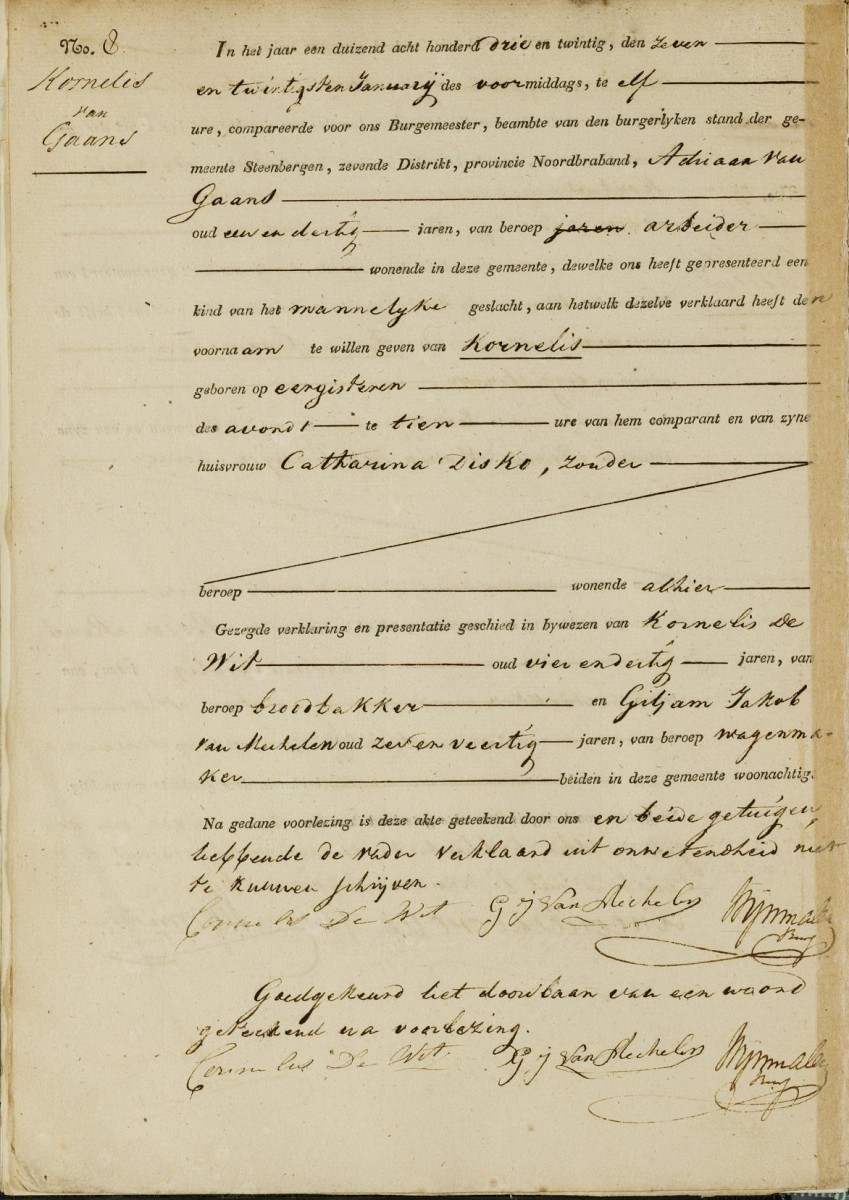 No. 8.
Kornelis
van
Gaans
In het jaar een duizend acht honderd drie en twintig, den zeven
en twintigsten Januarij des voormiddags, te elf
ure, compareerde voor ons Burgemeester, beambte van den burgerlyken stand der ge-
meente Steenbergen, zevende Distrikt, provincie Noordbraband, Adriaan van
Gaans
oud een en dertig jaren, van beroep jaren. arbeider
wonende in deze gemeente, dewelke ons heeft gepresenteerd een
kind van het mannelyke geslacht, aan hetwelk dezelve verklaard heeft den
voornaam te willen geven van Kornelis
geboren op eergisteren
des avondt te tien ure van hem comparant en van zyne
huisvrouw Catharina Disko, zonder
beroep wonende alhier
Gezegde verklaring en presentatie geschied in bywezen van Kornelis De
Wit oud vier en dertig jaren, van
beroep broodbakker en Giljam Jakob
van Mechelen oud zes en veertig jaren, van beroep wagenma-
ker beiden in deze gemeente woonachtig.
Na gedane voorlezing is deze akte geteekend door ons en beide getuigen,
hebbende de vader verklaard uit onwetendheid niet
te kunnen schrijven.
Cornelus De Wit G J Van Mechelen
Burg
Goedgekeurd het doorhaan van een woord
geteekend na voorlezing.
Cornelus De Wit G J Van Mechelen
Burg